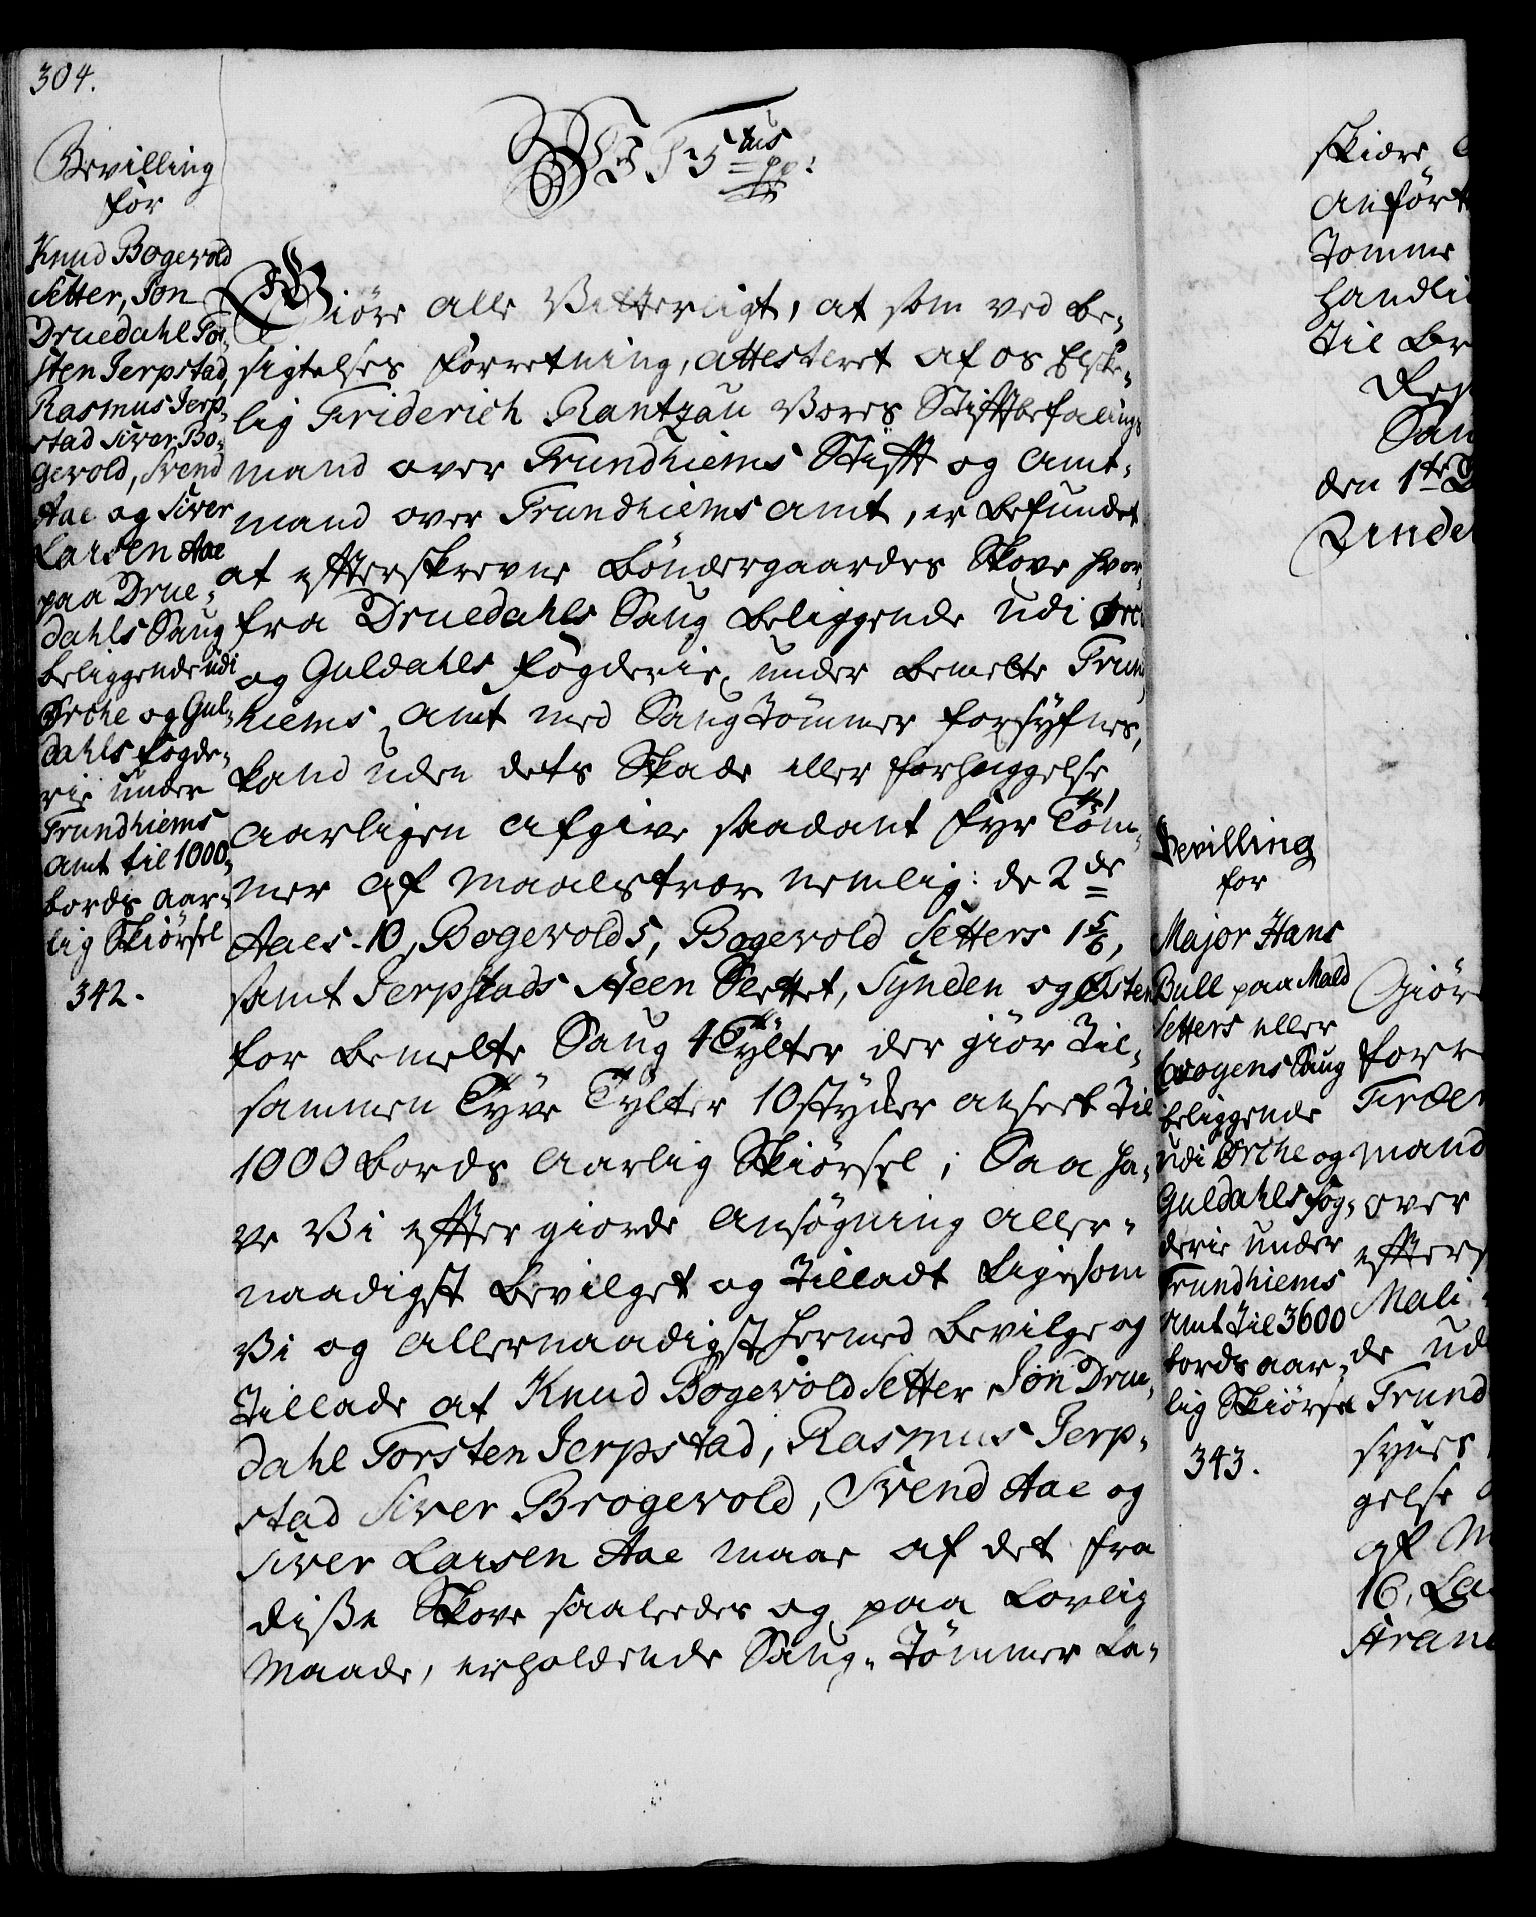 304.
Bevilling
for
Knud Bogevold
Setter, Jon
Druedahl Tor-
sten Jerpstad,
Rasmus Jerp-
stad Siver Bo-
gevold, Svend
Aae og Siver
Larsen Aae
paa Drue-
dahls Saug
beliggende udi
Ørche og Gul-
dahls fogde-
rie under
Trundhiems
Amt til 1000-
bords aar-
lig Skiørsel
342.
Giöre alle Vitterligt, at som ved be-
sigtelses forretning, attesteret af os Elske-
lig Friderich Rantzau Vores Stifftbefalings
mand over Trundhiems Stifft og Amt-
mand over Trundhiems amt, er befundet
at effterskrevne böndergaardes Skove hvor-
fra Druedahls Saug beliggende udi Ørc
og Guldahls fogderie under bemelte Trund
hiems Amt med Saugtömmer forsyfnes,
kand uden dets Skade eller forhuggelse
aarligen afgive saadant fyr Töm-
mer af maalstræer nemlig: de 2de
Aaes-10, Bogevold 5, Bogevold Setters 1 5/6,
samt Jerpstads Steen Slettet, Synden og Østen
for bemelte Saug 4 Tylter der giör til-
sammen Tyve Tylter 10 stycker anseet til
1000 bords aarlig Skiörsel; Saa ha-
ve Vi effter giorde ansögning aller-
naadigst bevilget og tilladt ligesom
Vi og allernaadigst hermed bevilge og
tillade at Knud Bogevold Setter, Jon Drue-
dahl Torsten Jerpstad, Rasmus Jerp-
stad Siver Brogevold, Svend Aae og
Siver Larsen Aae maae af det fra
disse Skove saaledes og paa lovlig
maade, erholdende Saug-Tömmer la-
skiære
anfört
Tomme
handli
til br
San
den 1te
Bevilling
for
Major Hans
Bull paa Mald
Setters eller
beliggende
udi Ørche og
Guldahls fog-
derie under
Trundhiems
Amt til 3600
bords aar-
lig Skiörsel
343.
Giör
forr
mand
over
effters
Mali
de ud
Trund
synes
gelse
af M
16, La